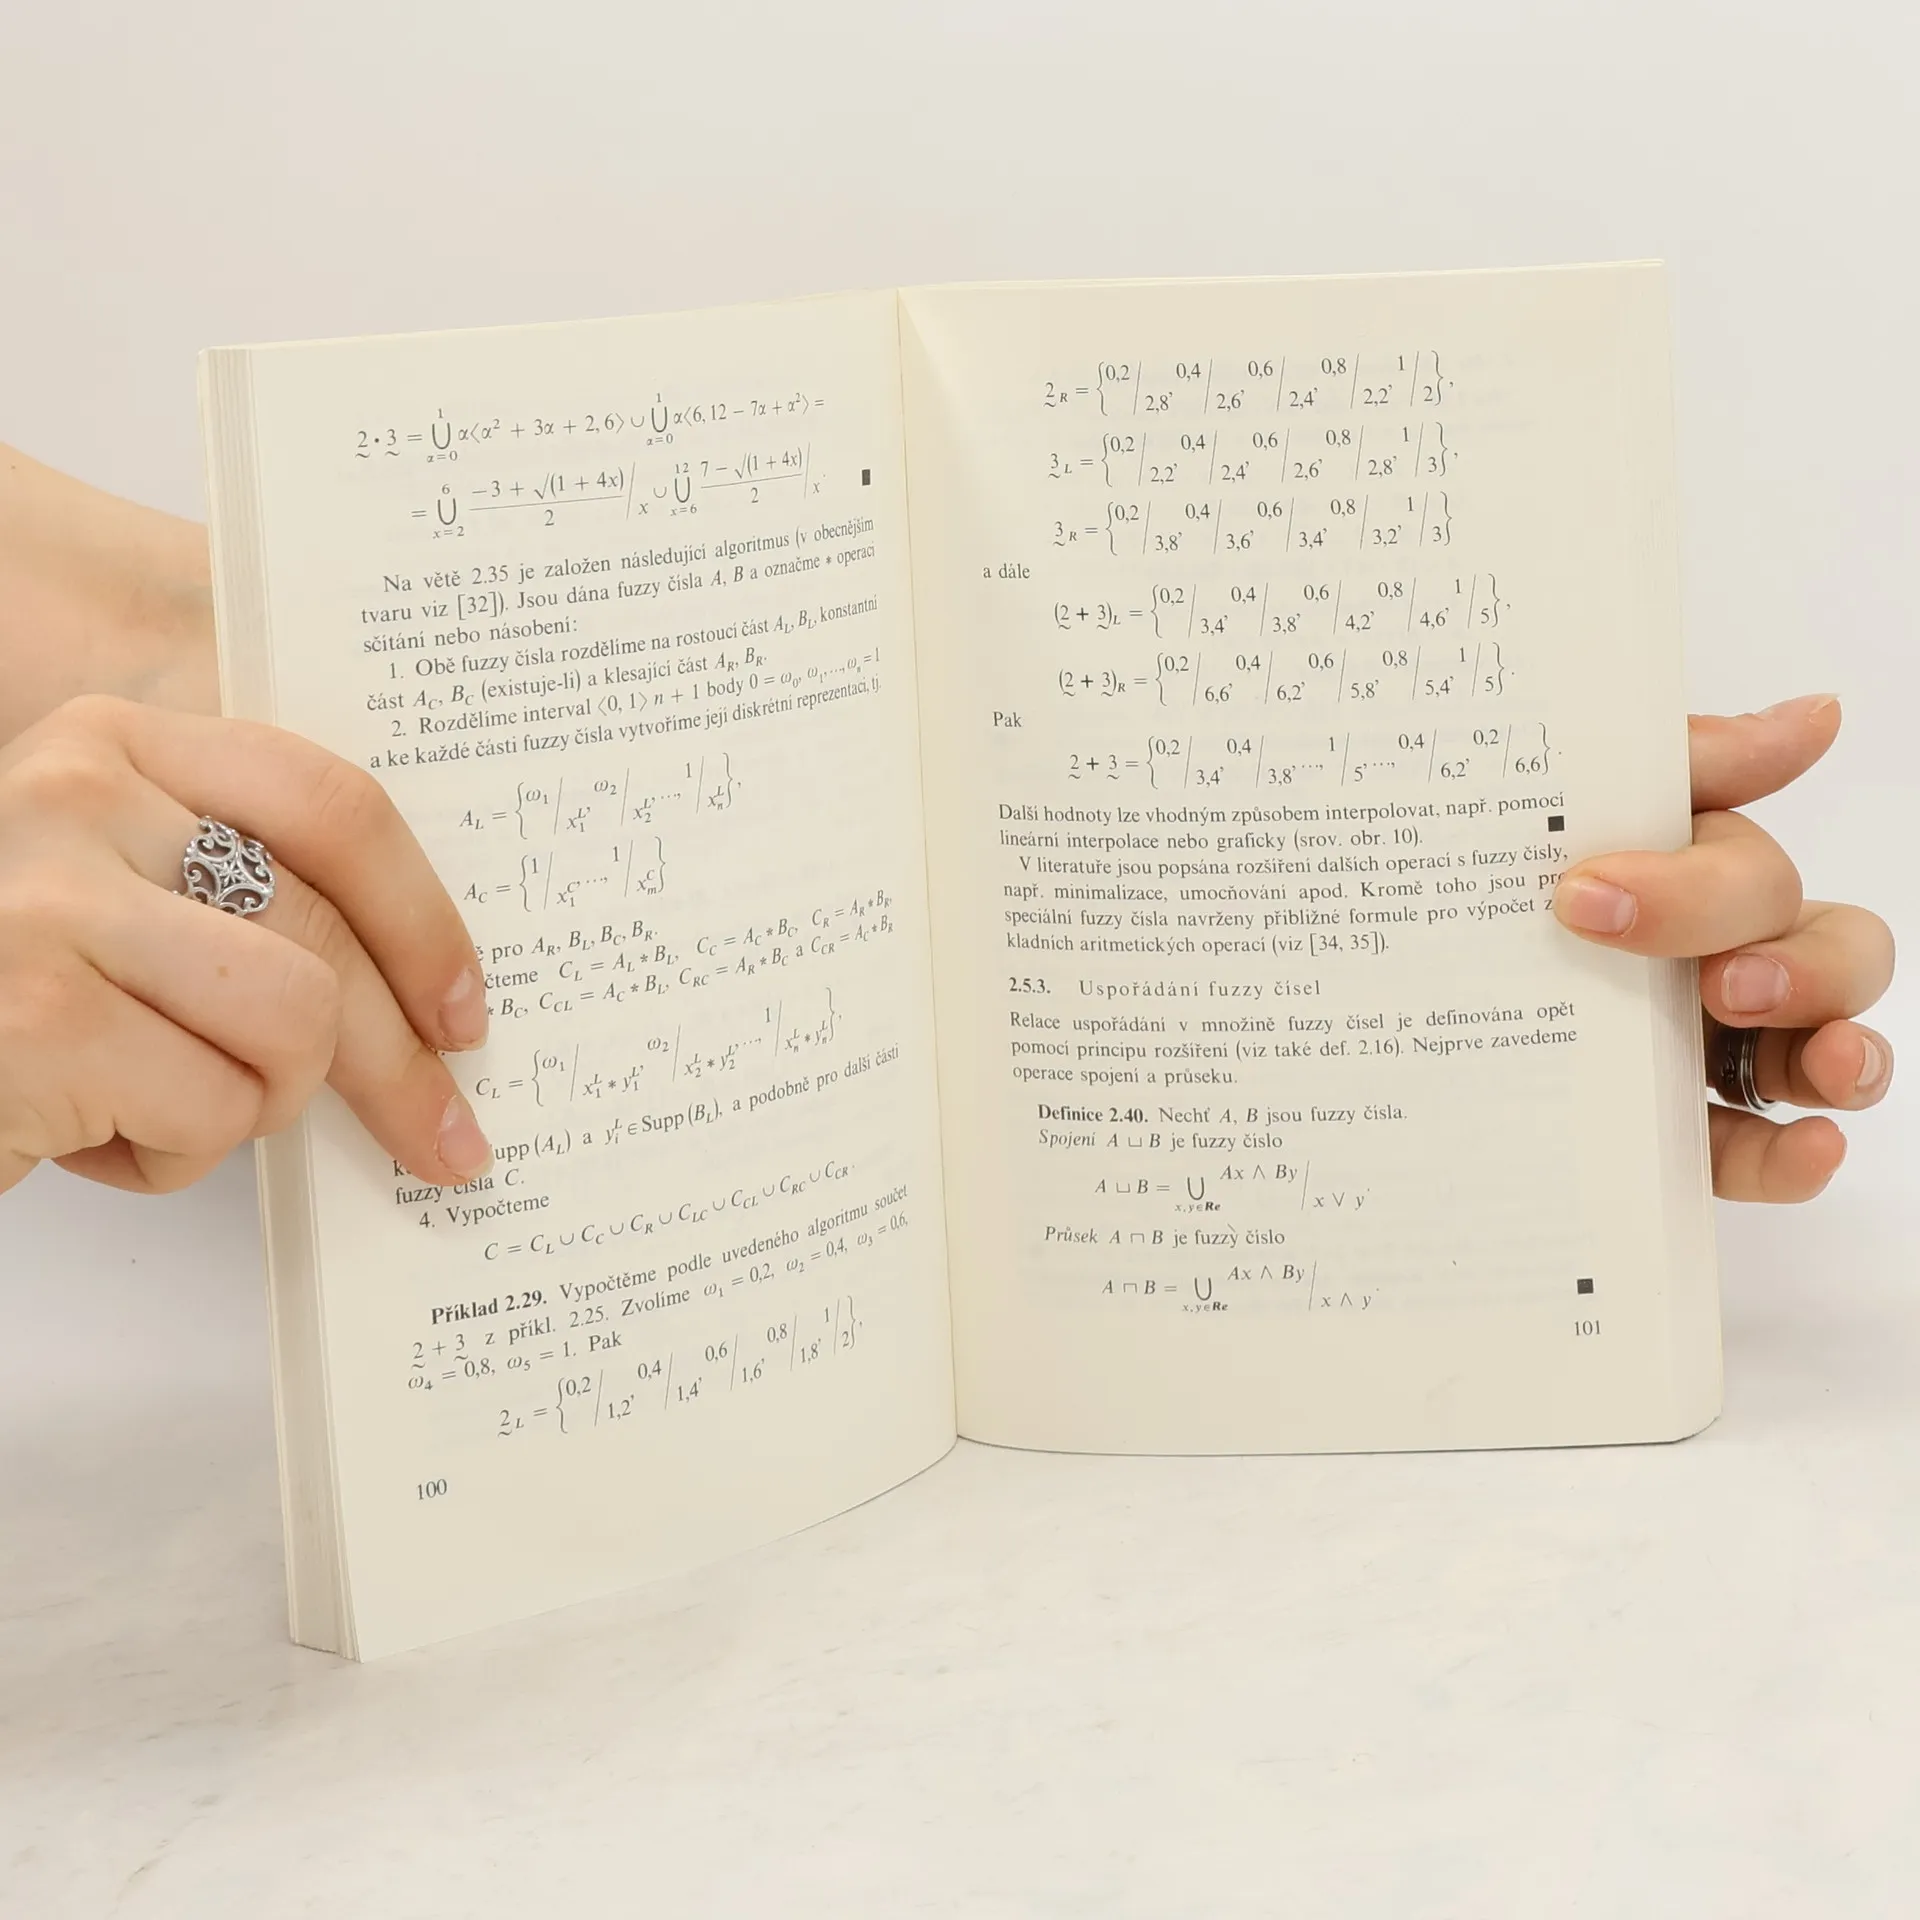 2 · 3 = ⋃_{α=0}^{1} α⟨α² + 3α + 2, 6⟩ ∪ ⋃_{α=0}^{1} α⟨6, 12 − 7α + α²⟩ =
= ⋃_{x=2}^{6} (−3 + √(1 + 4x))/2 / x ∪ ⋃_{x=6}^{12} (7 − √(1 + 4x))/2 / x. ■
Na větě 2.35 je založen následující algoritmus (v obecnějším
tvaru viz [32]). Jsou dána fuzzy čísla A, B a označme * operaci
sčítání nebo násobení:
1. Obě fuzzy čísla rozdělíme na rostoucí část A_L, B_L, konstantní
část A_C, B_C (existuje-li) a klesající část A_R, B_R.
2. Rozdělíme interval ⟨0, 1⟩ n + 1 body 0 = ω₀, ω₁, ..., ωₙ = 1
a ke každé části fuzzy čísla vytvoříme její diskrétní reprezentaci, tj.
A_L = {ω₁/x₁^L, ω₂/x₂^L, ..., 1/xₙ^L},
A_C = {1/x₁^C, ..., 1/x_m^C}
pro A_R, B_L, B_C, B_R.
C_L = A_L * B_L, C_C = A_C * B_C, C_R = A_R * B_R,
* B_C, C_CL = A_C * B_L, C_RC = A_R * B_C a C_CR = A_C * B_R
C_L = {ω₁/x₁^L * y₁^L, ω₂/x₂^L * y₂^L, ..., 1/xₙ^L * yₙ^L},
(A_L) a y_i^L ∈ Supp (B_L), a podobně pro další části
fuzzy čísla C.
4. Vypočteme
C = C_L ∪ C_C ∪ C_R ∪ C_LC ∪ C_CL ∪ C_RC ∪ C_CR.
Příklad 2.29. Vypočtěme podle uvedeného algoritmu součet
2 + 3 z příkl. 2.25. Zvolíme ω₁ = 0,2, ω₂ = 0,4, ω₃ = 0,6,
ω₄ = 0,8, ω₅ = 1. Pak
2_L = {0,2/1,2, 0,4/1,4, 0,6/1,6, 0,8/1,8, 1/2},
100
2_R = {0,2/2,8, 0,4/2,6, 0,6/2,4, 0,8/2,2, 1/2},
3_L = {0,2/2,2, 0,4/2,4, 0,6/2,6, 0,8/2,8, 1/3},
3_R = {0,2/3,8, 0,4/3,6, 0,6/3,4, 0,8/3,2, 1/3}
a dále
(2 + 3)_L = {0,2/3,4, 0,4/3,8, 0,6/4,2, 0,8/4,6, 1/5},
(2 + 3)_R = {0,2/6,6, 0,4/6,2, 0,6/5,8, 0,8/5,4, 1/5}.
Pak
2 + 3 = {0,2/3,4, 0,4/3,8, ..., 1/5, ..., 0,4/6,2, 0,2/6,6}.
Další hodnoty lze vhodným způsobem interpolovat, např. pomocí
lineární interpolace nebo graficky (srov. obr. 10). ■
V literatuře jsou popsána rozšíření dalších operací s fuzzy čísly,
např. minimalizace, umocňování apod. Kromě toho jsou
speciální fuzzy čísla navrženy přibližné formule pro výpočet
kladních aritmetických operací (viz [34, 35]).
2.5.3. Uspořádání fuzzy čísel
Relace uspořádání v množině fuzzy čísel je definována opět
pomocí principu rozšíření (viz také def. 2.16). Nejprve zavedeme
operace spojení a průseku.
Definice 2.40. Nechť A, B jsou fuzzy čísla.
Spojení A ⊔ B je fuzzy číslo
A ⊔ B = ⋃_{x,y∈Re} Ax ∧ By / x ∨ y.
Průsek A ⊓ B je fuzzy číslo
A ⊓ B = ⋃_{x,y∈Re} Ax ∧ By / x ∧ y. ■
101